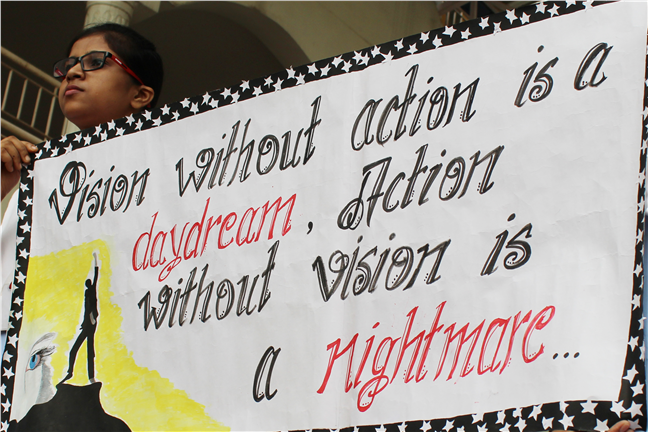 Vision without action is a
daydream, Action
without vision is
a nightmare...